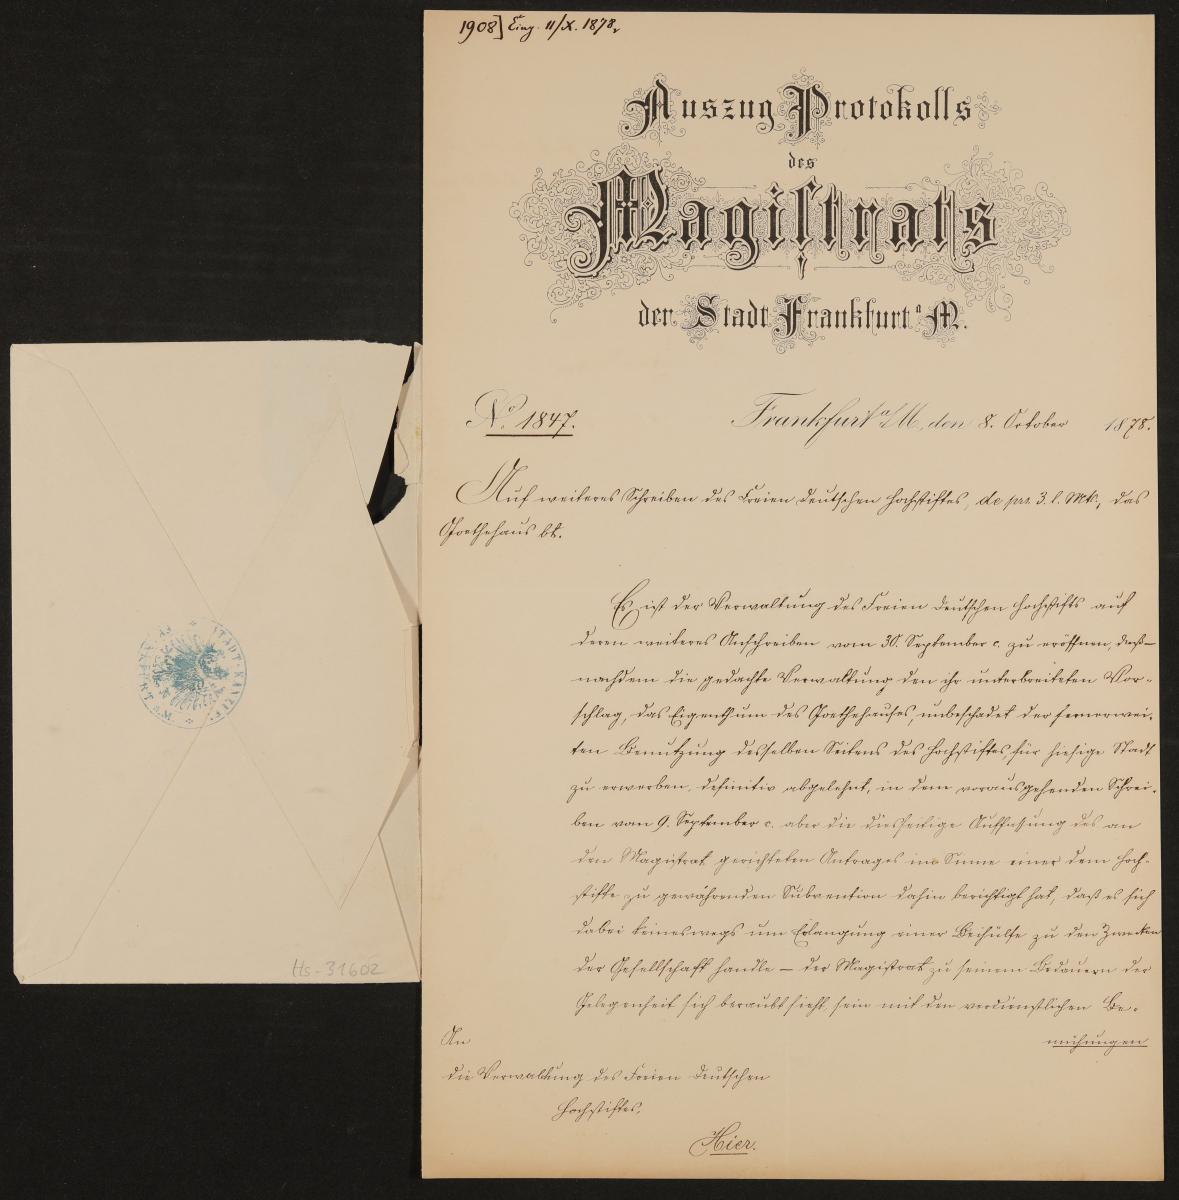 1908] Eing. 11/X. 1878,
Auszug Protokolls
des
Magistrats
der Stadt Frankfurt a M.
No. 1847.
Frankfurt a/M, den 8. October 1878.
Auf weiteres Schreiben des Freien Deutschen Hochstiftes, de prs. 3. l. Mts., das
Goethehaus btr.
Es ist der Verwaltung des Freien Deutschen Hochstifts auf
deren weiteres Anschreiben vom 30. September c. zu eröffnen, daß –
nachdem die gedachte Verwaltung den ihr unterbreiteten Vor-
schlag, das Eigenthum des Goethehauses, unbeschadet der fernerwei-
ten Benutzung desselben Seitens des Hochstiftes, für hiesige Stadt
zu erwerben, definitiv abgelehnt, in dem vorausgehenden Schrei-
ben vom 9. September c. aber die diesseitige Auffassung des an
den Magistrat gerichteten Antrages im Sinne einer dem Hoch-
stifte zu gewährenden Subvention dahin berichtigt hat, daß es sich
dabei keineswegs um Erlangung einer Beihülfe zu den Zwecken
der Gesellschaft handle – der Magistrat zu seinem Bedauern der
Gelegenheit sich beraubt sieht, sein mit den verdienstlichen Be-
mühungen
An
die Verwaltung des Freien Deutschen
Hochstiftes,
Hier.
STADT-KANZLEI
FRANKFURT a/M
Hs-31602